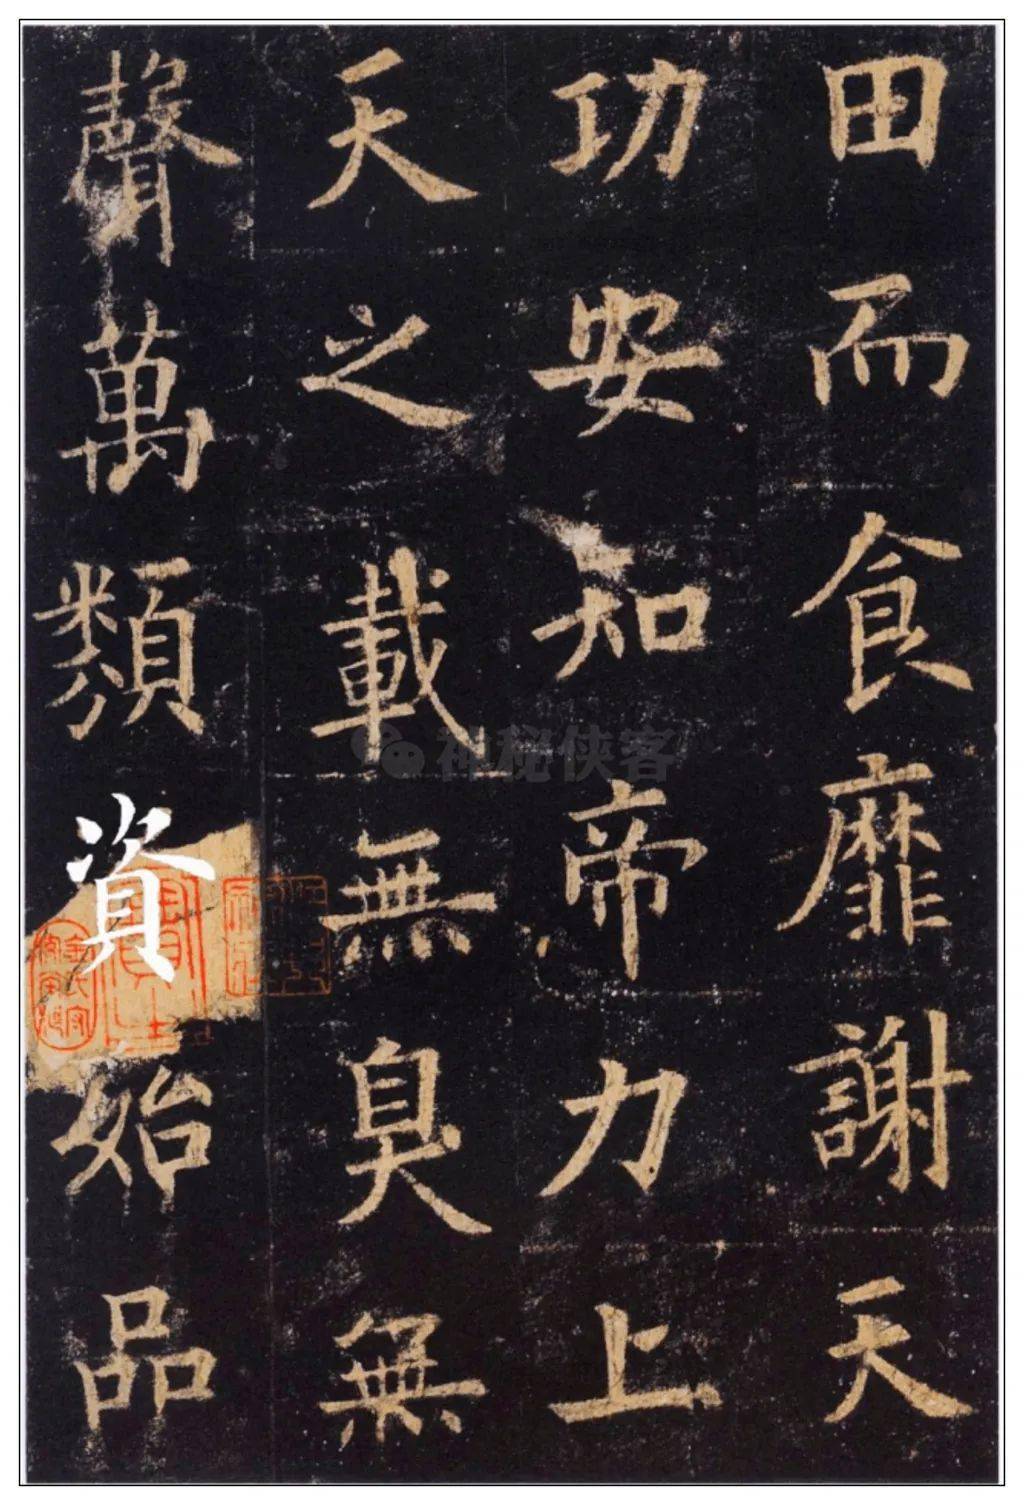 田而食靡謝天
功安知帝力上
天之載無臭無
聲萬類資始品
神秘侠客